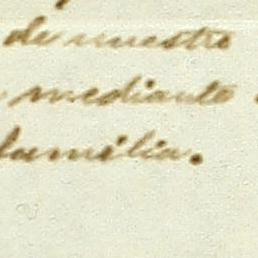 de nuestro
mediante
familia.